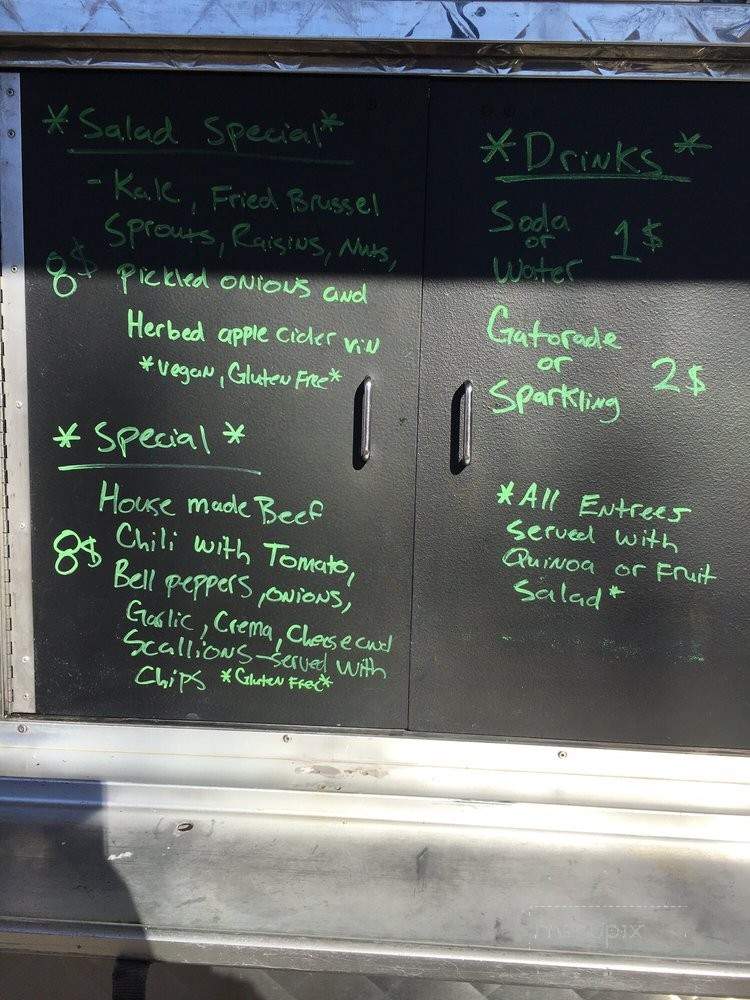 *Salad Special*
- Kale, Fried Brussel
Sprouts, Raisins, Nuts,
8$ Pickled onions and
Herbed apple cider vin
*Vegan, Gluten Free*
*Special*
House made Beef
8$ Chili with Tomato,
Bell peppers, onions,
Garlic, Crema, Cheese and
Scallions - served with
Chips *Gluten Free*
*Drinks*
Soda
or 1$
Water
Gatorade
or 2$
Sparkling
*All Entrees
served with
Quinoa or Fruit
Salad*
menupix